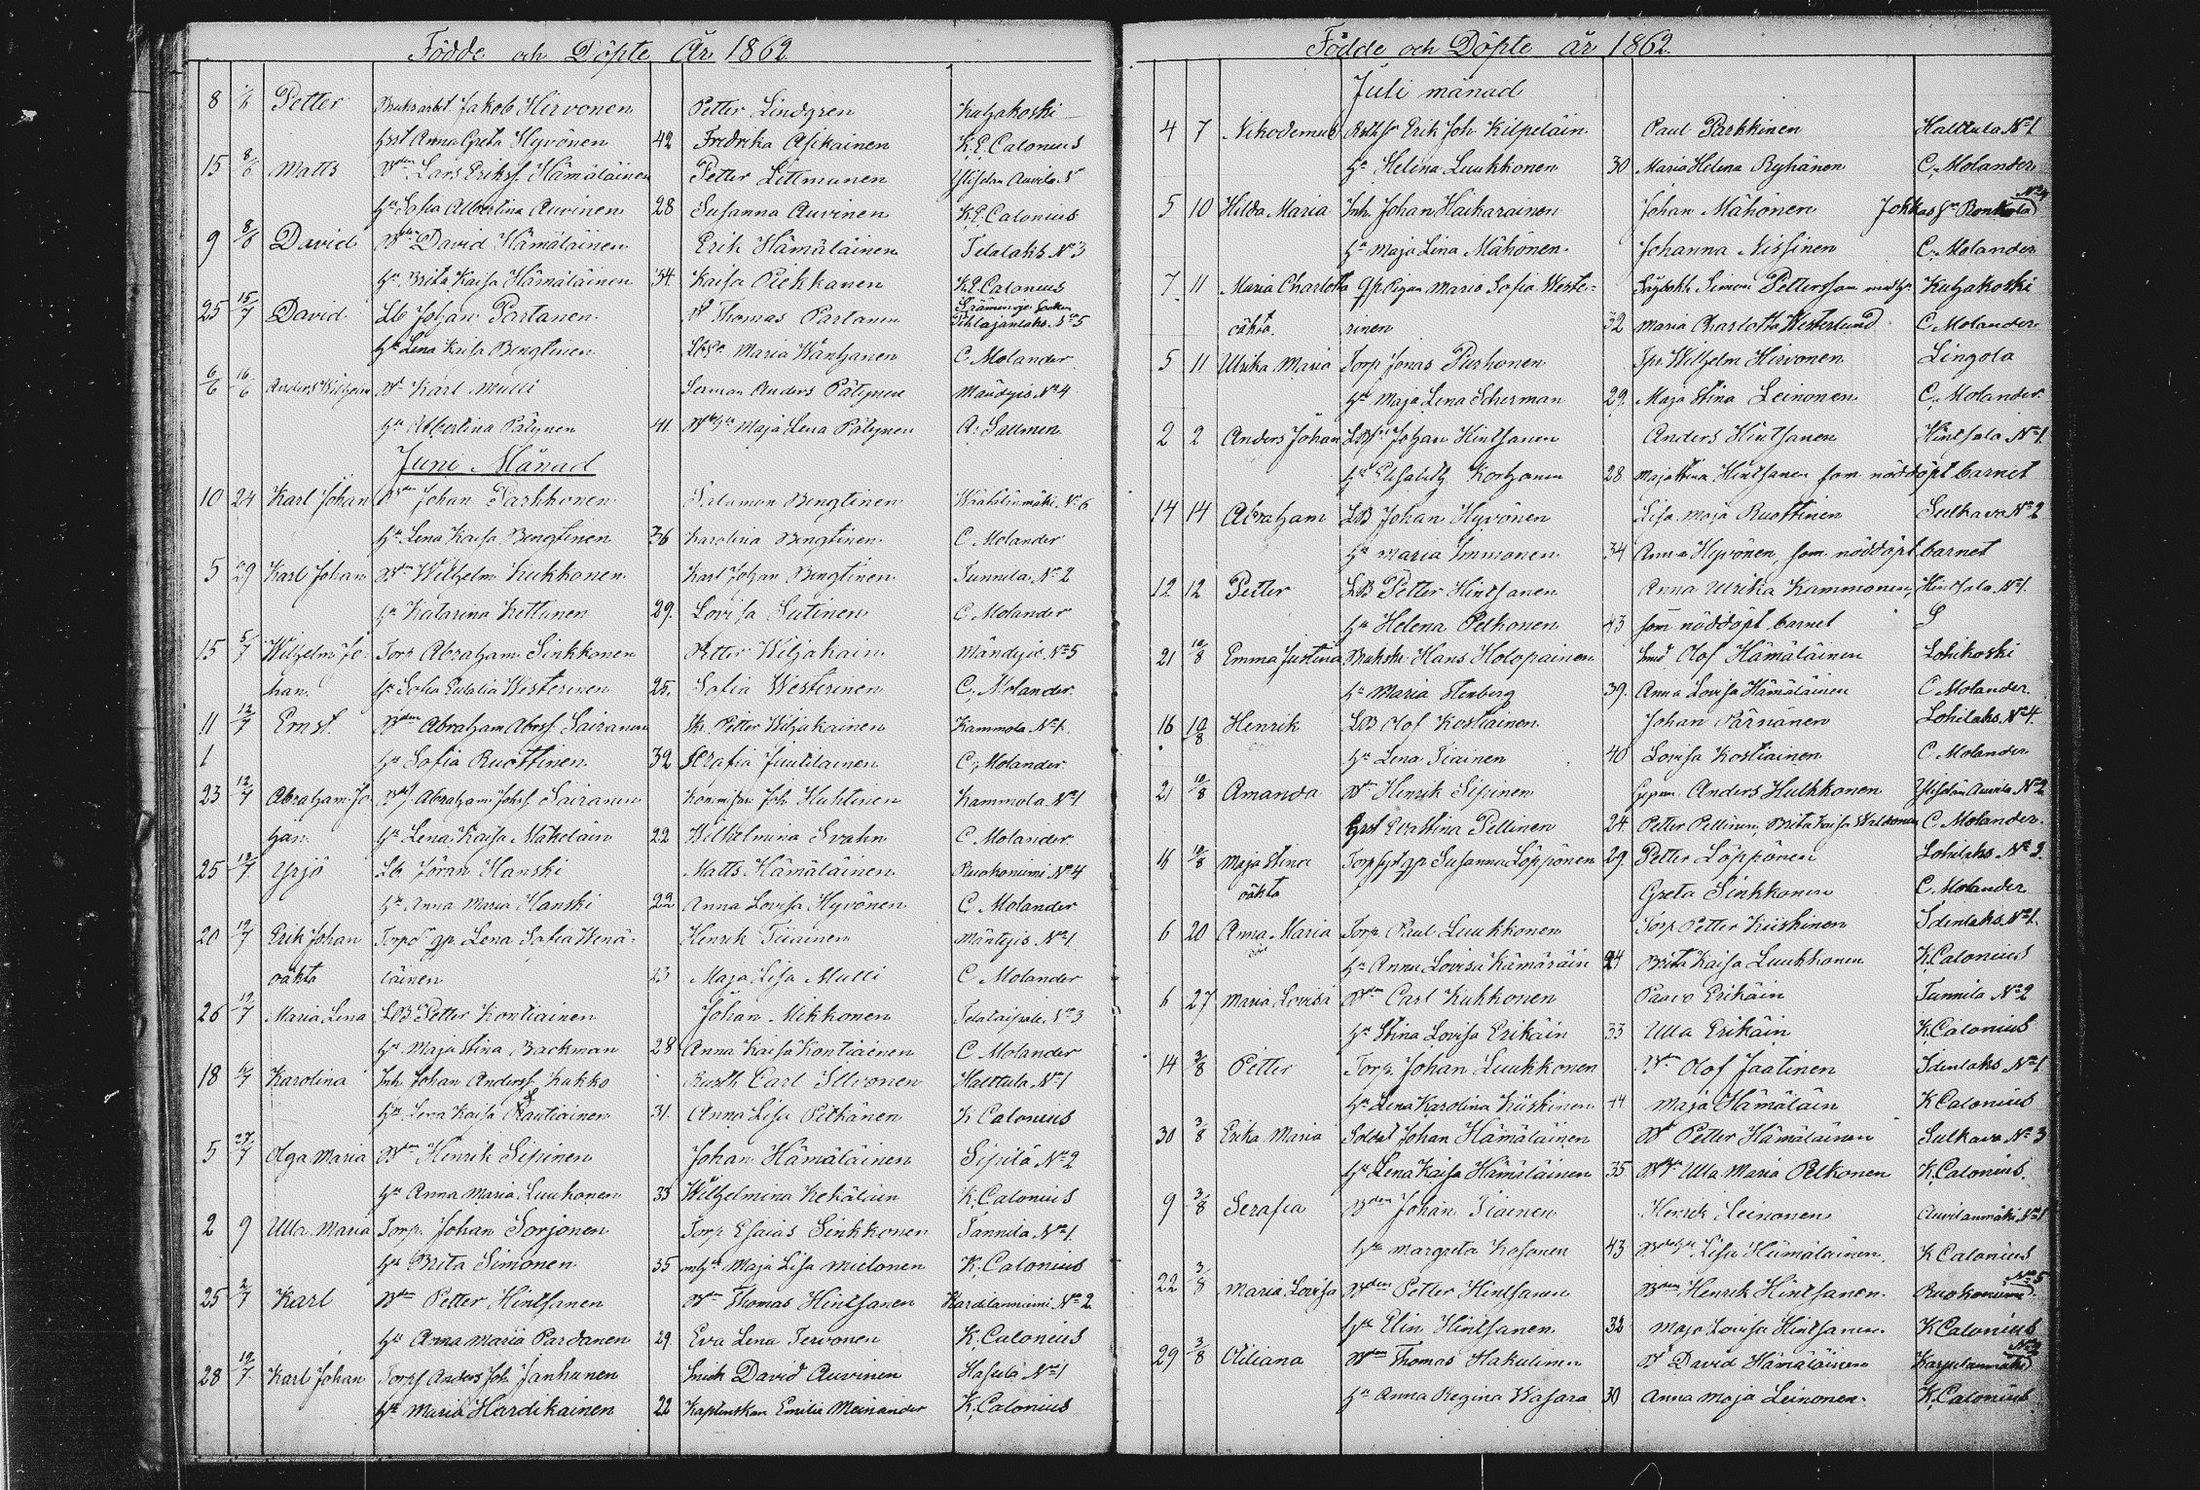 Födde och Döpte År 1862
8 Petter Bruksarbet. Jakob Hirvonen Petter Lindgren Kuhakoski
hst Anna Greta Hyvönen 42 Fredrika Asikainen K.E. Calonius
15 8/6 Matts Bden Lars Erikss. Hämäläinen Petter Littmanen Auvila
hu Sofia Albertina Auvinen 28 Susanna Auvinen K.E. Calonius
9 8/6 David Bden David Hämäläinen Erik Hämäläinen Telalaks No 3
hu Brita Kaisa Hämäläinen 34. Kaisa Piekkanen K.E. Calonius
25 15/7 David Lb Johan Partanen Thomas Partanen Pihlajanlaks. No 5
hu Lena Kaisa Bengtinen Maria Wäntjanen C. Molander
6/6 16/6 Anders Wilhelm Bd Karl Mutti Anders Pätynen Mändyis No 4
hu Albertina Pätynen 41. Maja Lena Pätynen A. Sallmen
Juni Månad
10 24 Karl Johan Bden Johan Parkkonen Salomon Bengtinen No 6
hu Lena Kaisa Bengtinen 36 Karolina Bengtinen C Molander
5 29 Karl Johan Bdn Wilhelm Kukkonen Karl Johan Bengtinen Tunnila. No 2
hu Katarina Kettunen 29. Lovisa Sutinen C Molander
15 5/7 Wilhelm Jo- Torp Abraham Sinkkonen Petter Wiljakain Mändyis No 5
han. hu Sofia Eulalia Westerinen 25. Sofia Westerinen C. Molander.
11 12/7 Ernst. Bden Abraham Abrss. Sairanen Petter Wiljakainen Kammola No 1.
1 hu Sofia Ruottinen 32 Serafia Juutilainen C. Molander
23 12/7 Abraham Jo- Abraham Johss. Sairanen Joh. Huhtinen Kammola No 1
han. hu Lena Kaisa Mäkeläin 22 Wilhelmina Svahn C. Molander
25 12/7 Yrjö Lb Jöran Hanski Matts Hämäläinen Ruokoniemi No 4
hu Anna Maria Hanski 22 Anna Lovisa Hyvönen C. Molander
20 12/7 Erik Johan Torpd. qp. Lena Sofia Wenä- Henrik Tiiainen Mäntyis No 1
oäkta läinen 23 Maja Lisa Mutti C Molander
26 12/7 Maria Lena LB Petter Kontiainen Johan Mikkonen No 3
hu Maja Stina Backman 28 Anna Kaisa Kontiainen C Molander
18 Karolina Inh. Johan Anderss. Kukko Carl Ilvonen Halttula No 1
hu Lena Kaisa Rautiainen 31. Anna Lisa Pitkänen K Calonius
5 27/7 Olga Maria Bden Henrik Sipinen Johan Hämäläinen Sipilä No 2
hu Anna Maria Luukonen 33 Wilhelmina Kekäläin K. Calonius
2 9 Ulla Maria Torp. Johan Sorjonen Torp Esaias Sinkkonen Tannila No 1.
hu Brita Simonen 35 Maja Lisa Mielonen K. Calonius
25 2/7 Karl Bdn Petter Hintsanen Bdn Thomas Hintsanen Kardilanniemi No 2
hu Anna Maria Pardanen 29. Eva Lena Tervonen K. Calonius
28 19/7 Karl Johan Anders Joh. Janhunen David Auvinen Hasula No 1
hu Maria Hardikainen 22 Emilia Meinander K. Calonius
Födde och Döpte år 1862.
Juli månad
4 7 Nikodemus Erik Joh. Kilpeläin Paul Parkkinen Halttula No 1
hu Helena Luukkonen 30 Maria Helena Ryhänen C. Molander
5 10 Hilda Maria Inh. Johan Haikarainen Johan Mähönen No 4
hu Maja Lina Mähönen. Johanna Nissinen C. Molander
7 11 Maria Charlotta qp. Maria Sofia Weste- Simon Pettersson Kuhakoski
oäkta. rinen 32 Maria Charlotta Westerlund C. Molander
5 11 Ulrika Maria Torp Jonas Purhonen Wilhelm Hirvonen Lingola
hu Maja Lena Scherman 29. Maja Stina Leinonen C. Molander
2 2 Anders Johan Johan Hintsanen Anders Hintsanen Hintsala No 1.
hu Elisabeth Korhonen 28 Maja Stina Hintsanen som nöddöpt barnet
14 14 Abraham LB Johan Hyvönen Lisa Maja Ruottinen Sulkava No 2
hu Maria Immonen 34 Anna Hyvönen, som nöddöpt barnet
12 12 Petter LB Petter Hintsanen Anna Ulrika Kammonen, Hintsala No 1.
hu Helena Pelkonen 43 som nöddöpt barnet
21 10/8 Emma Justina Hans Holopainen Olof Hämäläinen Lohikoski
hu Maria Stenberg 39. Anna Lovisa Hämäläinen C Molander.
16 10/8 Henrik LB Olof Kostiainen Johan Pärnänen Lohilaks No 4.
hu Lena Tiainen 40 Lovisa Kostiainen C Molander
21 10/8 Amanda Bdn Henrik Sipinen Anders Hulkkonen Auvila No 2
hust Eva Stina Pellinen 24. Petter Pellinen, Brita Kaisa C Molander.
16 10/8 Maja Stina qp Susanna Löppönen 29. Petter Löppönen Lohilaks No 2.
oäkta Greta Sinkkonen C. Molander
6 20 Anna Maria Torp. Paul Luukkonen Torp Petter Kiiskinen Idenlaks. No 1.
hu Anna Lovisa Kämäräin 24 Brita Kaisa Luukkonen K Calonius
6 27 Maria Lovisa Bdn Carl Kukkonen Paavo Erikäin Tunnila No 2
hu Stina Lovisa Erikäin 33 Ulla Erikäin K. Calonius
14 3/8 Petter Torp. Johan Luukkonen Bdn Olof Jaatinen Idenlaks No 1
hu Lena Karolina Kiiskinen 44 Maja Hämäläin K Calonius
30 3/8 Erika Maria Soldat Johan Hämäläinen Bd Petter Hämäläinen Sulkava No 3
hu Lena Kaisa Hämäläinen 35 Ulla Maria Pelkonen K. Calonius.
9 3/8 Serafia Bden Johan Tiainen Henrik Leinonen Auvilanmäki No 1
hu Margreta Kosonen 43 Lisa Hämäläinen. K Calonius
22 3/8 Maria Lovisa Bden Petter Hintsanen Bden Henrik Hintsanen. Ruokoniemi No 5
hu Elin Hintsanen 32 Maja Lovisa Hintsanen. K Calonius
29 3/8 Adiana Bden Thomas Hakulinen Bd David Hämäläinen Karjulanmäki
hu Anna Regina Wasara 30 Anna Maja Leinonen. K. Calonius.